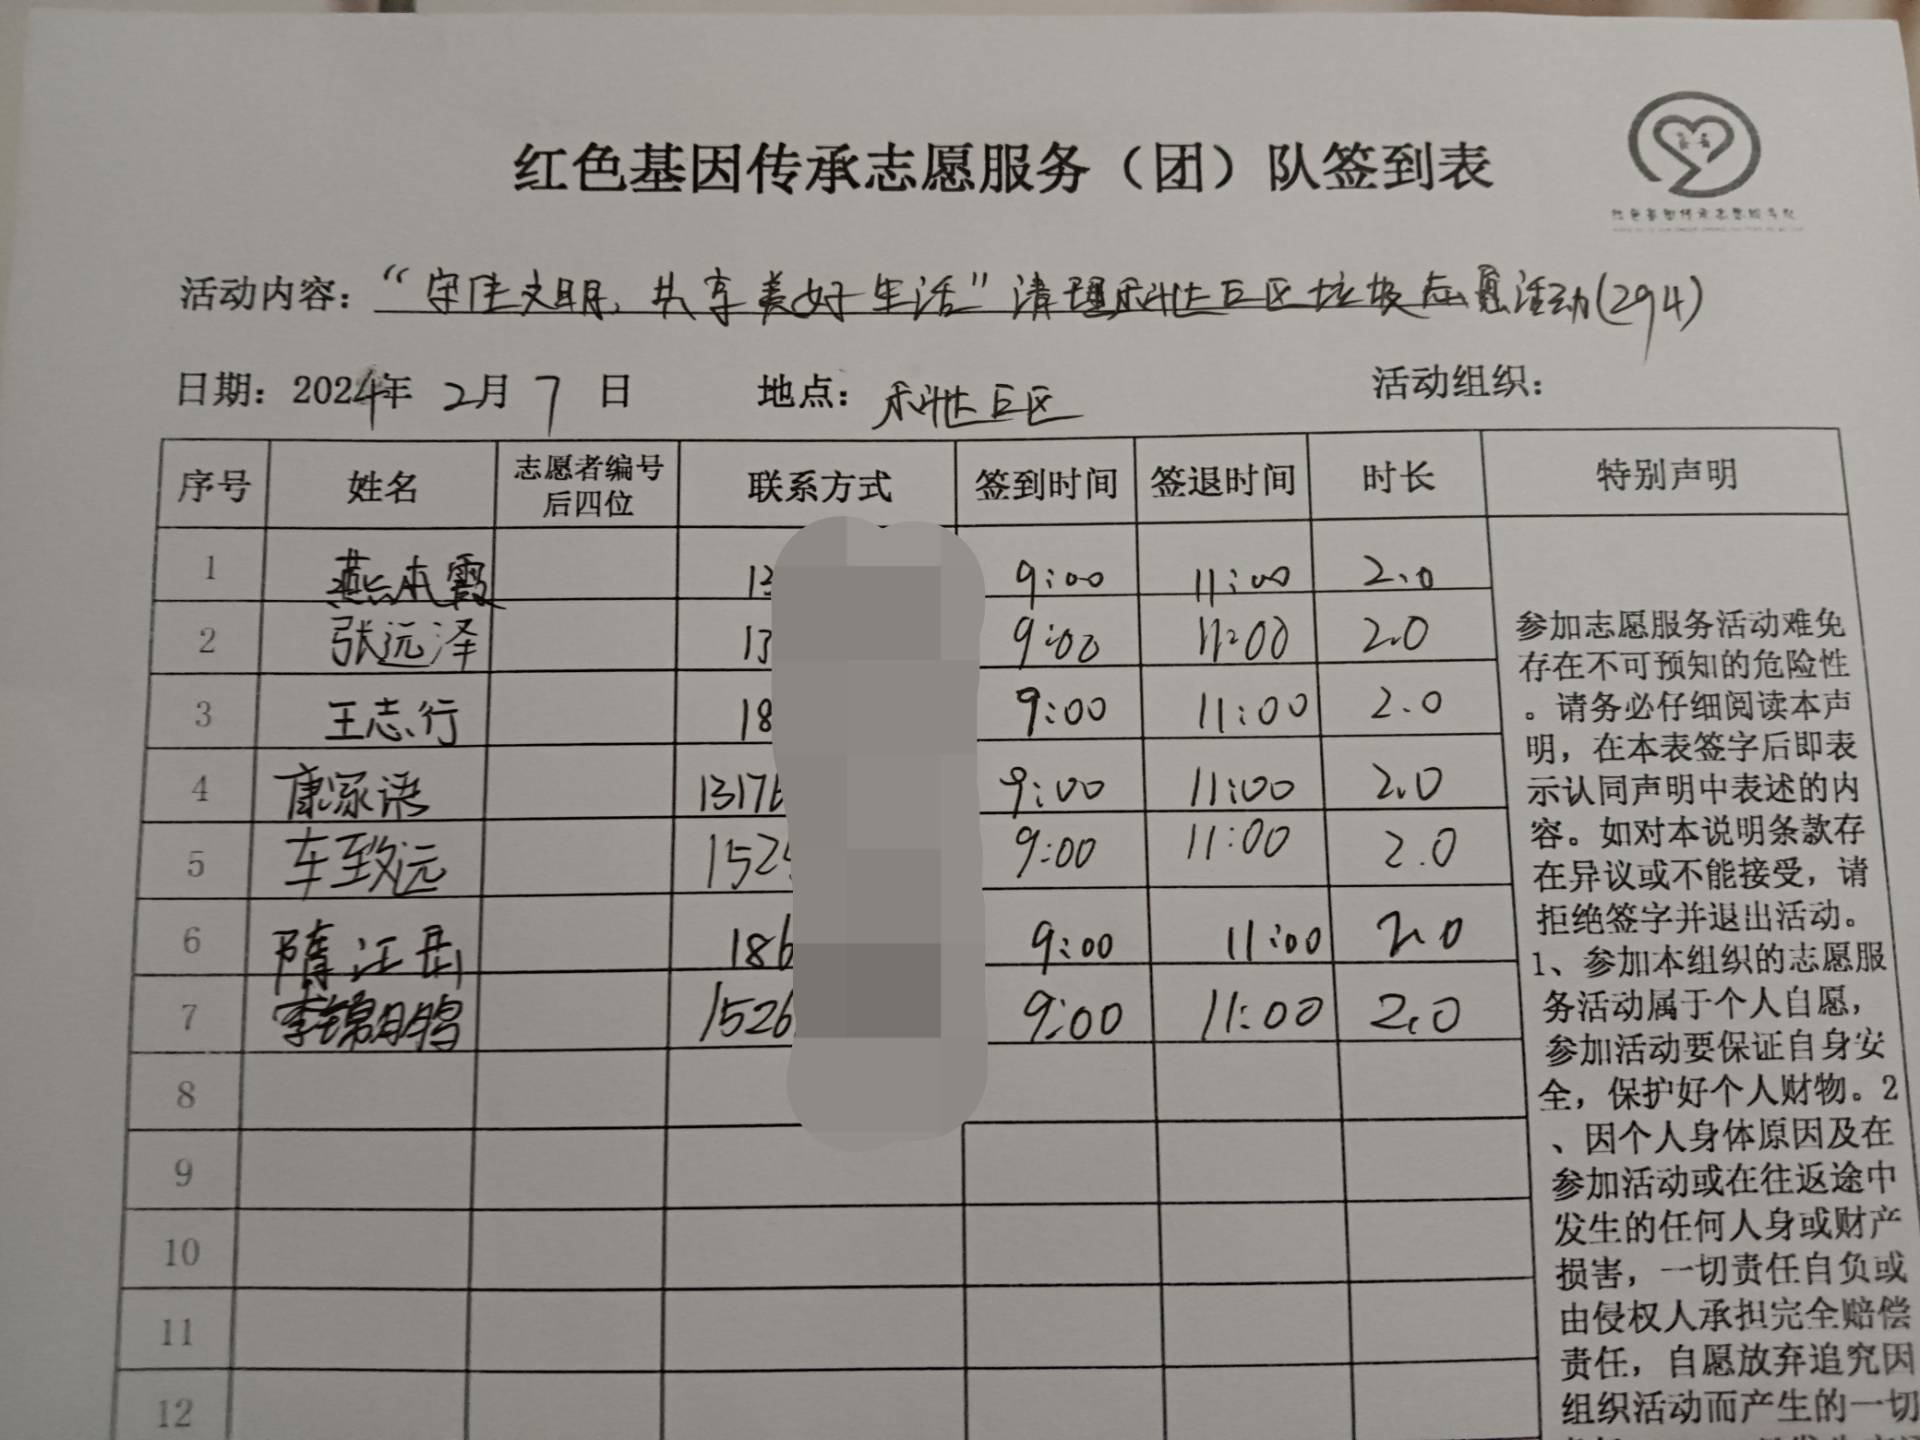 红色基因传承志愿服务（团）队签到表
活动内容："守住文明，共享美好生活"清理社区垃圾志愿活动(294)
日期：2024年 2月 7 日 地点： 社区 活动组织：
序号 姓名 志愿者编号后四位 联系方式 签到时间 签退时间 时长 特别声明
1 燕本霞 13 9:00 11:00 2.0
2 张远泽 13 9:00 11:00 2.0
3 王志行 18 9:00 11:00 2.0
4 康家语 1317 9:00 11:00 2.0
5 车致远 152 9:00 11:00 2.0
6 隋江岳 186 9:00 11:00 2.0
7 李锦鹏 1526 9:00 11:00 2.0
8
9
10
11
12
参加志愿服务活动难免
存在不可预知的危险性
。请务必仔细阅读本声
明，在本表签字后即表
示认同声明中表述的内
容。如对本说明条款存
在异议或不能接受，请
拒绝签字并退出活动。
1、参加本组织的志愿服
务活动属于个人自愿，
参加活动要保证自身安
全，保护好个人财物。2
、因个人身体原因及在
参加活动或在往返途中
发生的任何人身或财产
损害，一切责任自负或
由侵权人承担完全赔偿
责任，自愿放弃追究因
组织活动而产生的一切